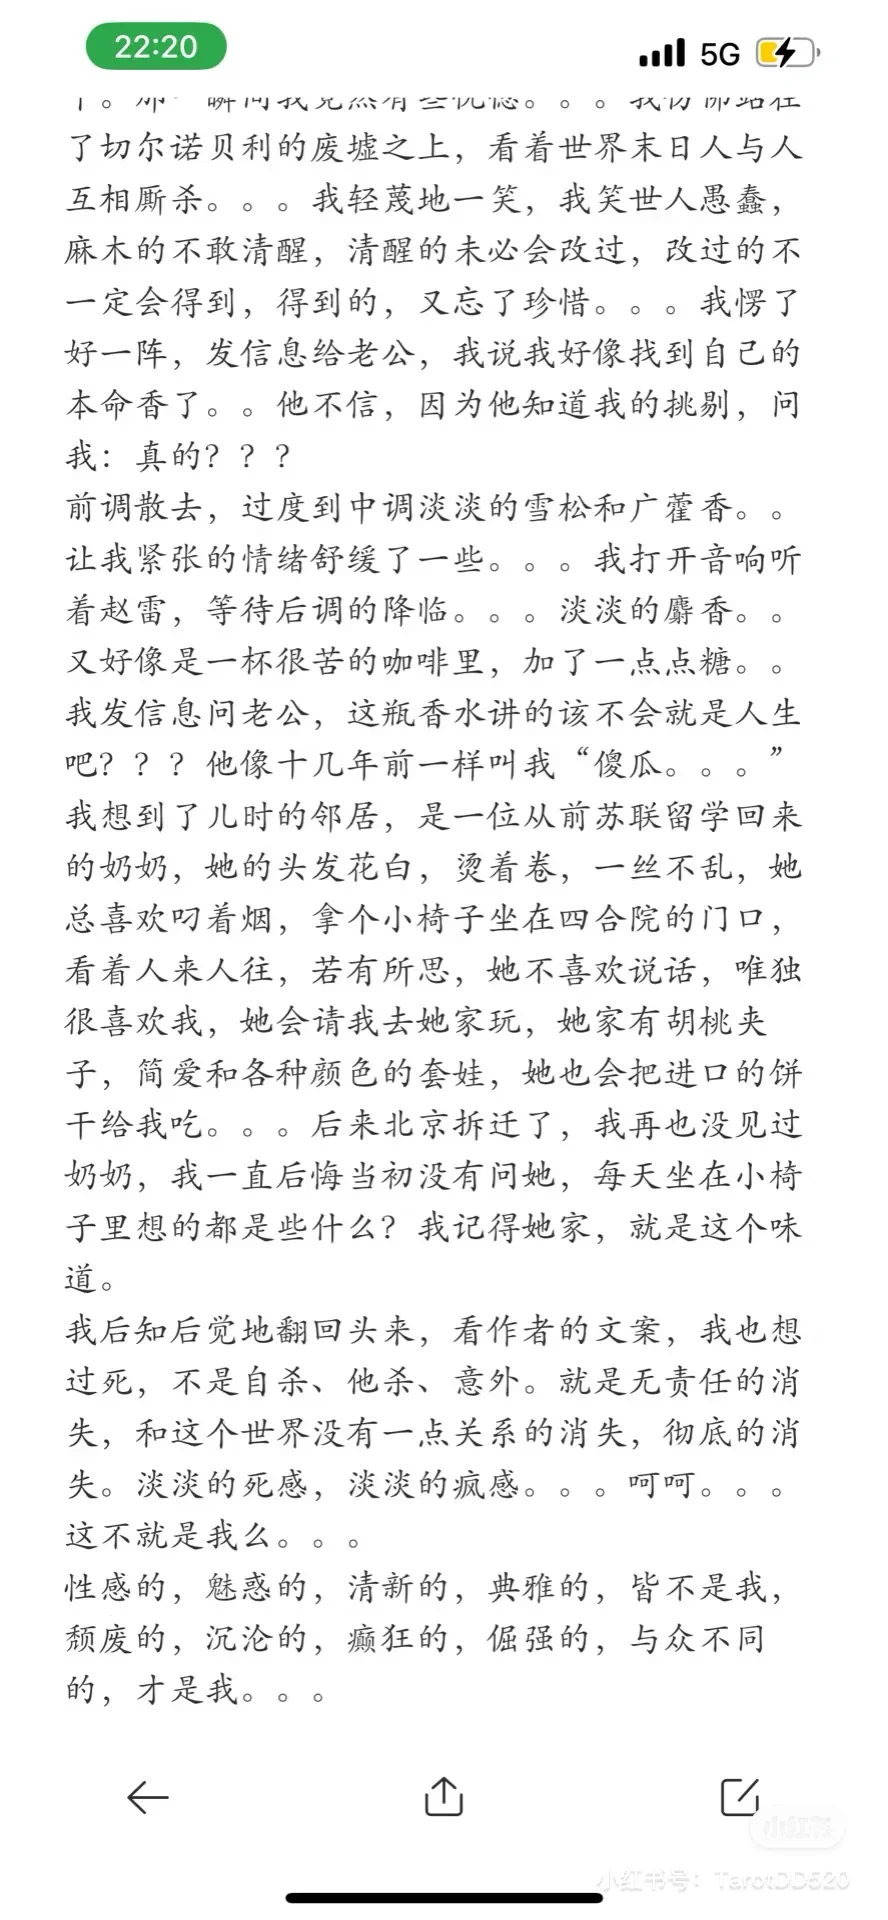 22:20
5G
了切尔诺贝利的废墟之上，看着世界末日人与人
互相厮杀。。。我轻蔑地一笑，我笑世人愚蠢，
麻木的不敢清醒，清醒的未必会改过，改过的不
一定会得到，得到的，又忘了珍惜。。。我愣了
好一阵，发信息给老公，我说我好像找到自己的
本命香了。。他不信，因为他知道我的挑剔，问
我：真的？？？
前调散去，过度到中调淡淡的雪松和广藿香。。
让我紧张的情绪舒缓了一些。。。我打开音响听
着赵雷，等待后调的降临。。。淡淡的麝香。。
又好像是一杯很苦的咖啡里，加了一点点糖。。
我发信息问老公，这瓶香水讲的该不会就是人生
吧？？？他像十几年前一样叫我“傻瓜。。。”
我想到了儿时的邻居，是一位从前苏联留学回来
的奶奶，她的头发花白，烫着卷，一丝不乱，她
总喜欢叼着烟，拿个小椅子坐在四合院的门口，
看着人来人往，若有所思，她不喜欢说话，唯独
很喜欢我，她会请我去她家玩，她家有胡桃夹
子，简爱和各种颜色的套娃，她也会把进口的饼
干给我吃。。。后来北京拆迁了，我再也没见过
奶奶，我一直后悔当初没有问她，每天坐在小椅
子里想的都是些什么？我记得她家，就是这个味
道。
我后知后觉地翻回头来，看作者的文案，我也想
过死，不是自杀、他杀、意外。就是无责任的消
失，和这个世界没有一点关系的消失，彻底的消
失。淡淡的死感，淡淡的疯感。。。呵呵。。。
这不就是我么。。。
性感的，魅惑的，清新的，典雅的，皆不是我，
颓废的，沉沦的，癫狂的，倔强的，与众不同
的，才是我。。。
小红书
小红书号：TarotDD520